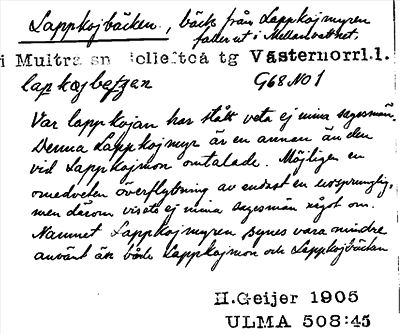 Lappkojbäcken, bäck från Lappkojmyren
faller ut i Mellanvattnet.
i Multrå sn Sollefteå tg Västernorrl.l.
lapkojbettzen G68 NO 1
Var lappkojan har stått veta ej mina sagesmän.
Denna Lappkojmyr är en annan än den
vid Lappkojmon omtalade. Möjligen en
omedveten överflyttning av endast en ursprunglig,
men därom visste ej mina sagesmän något om.
Namnet Lappkojmyren synes vara mindre
använt än både Lappkojmon och Lappkojbäcken
H.Geijer 1905
ULMA 508:45